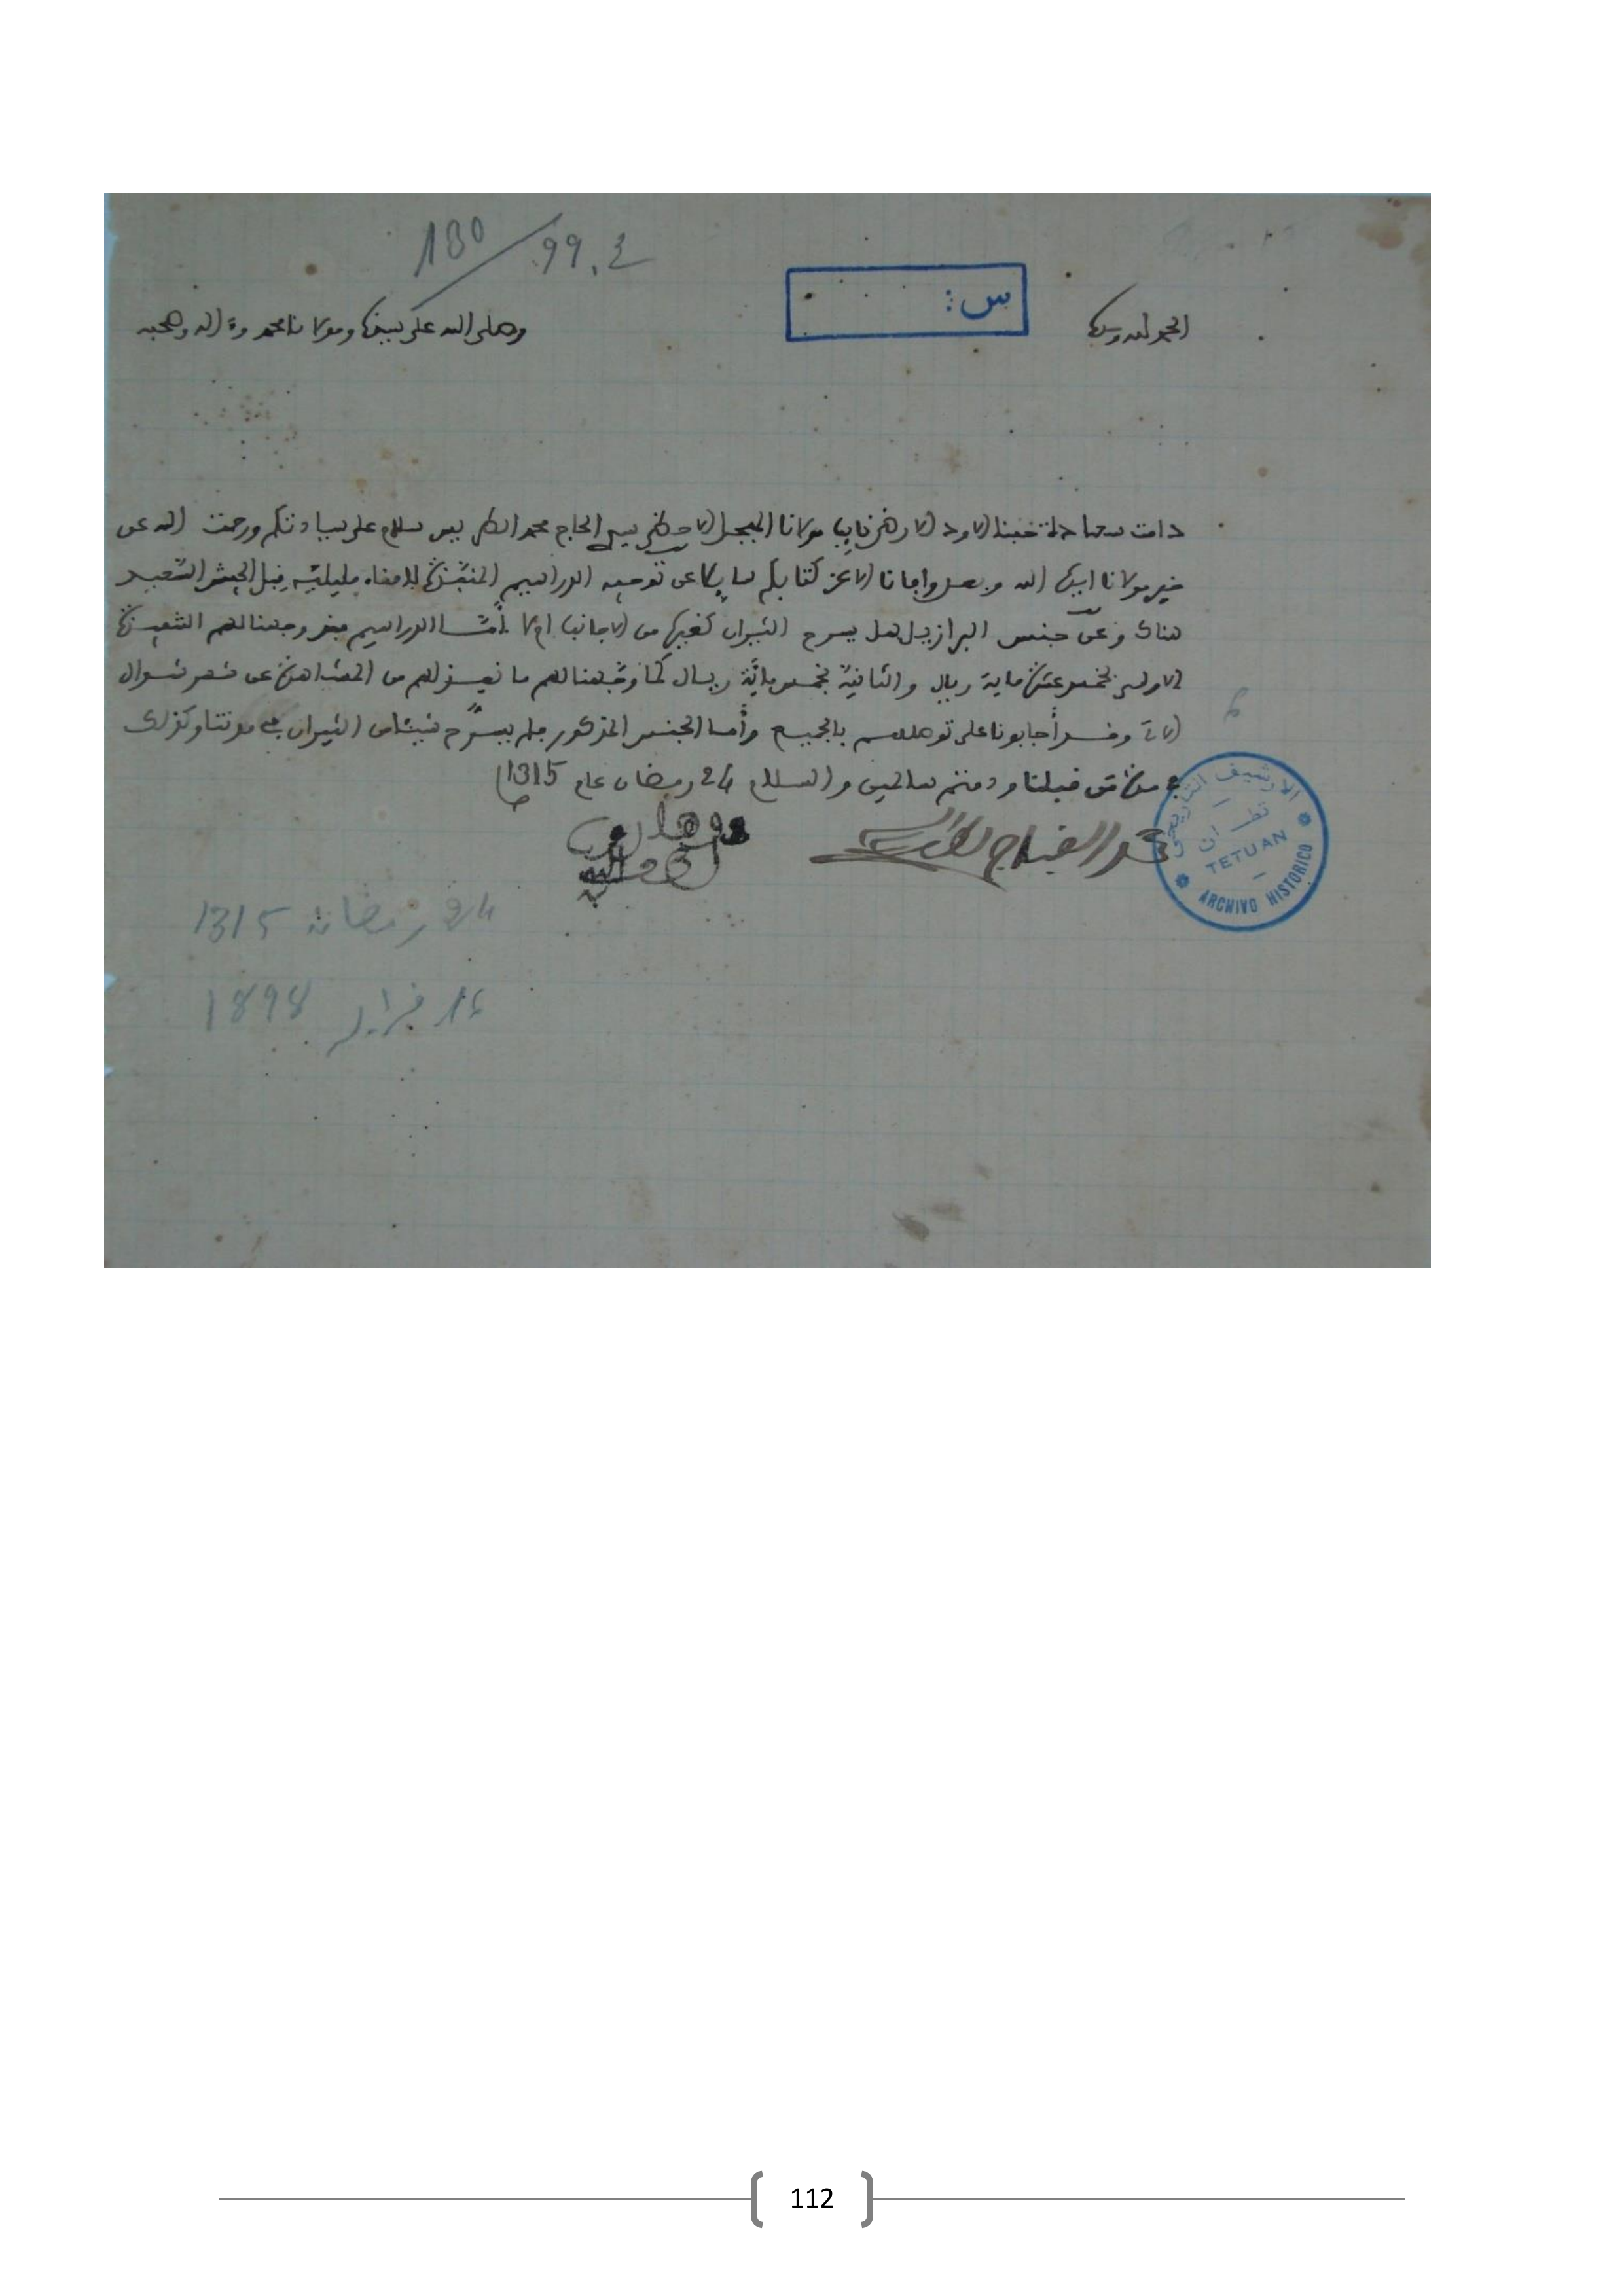 180/99.3
الحمد لله وحده
س:
وصلى الله على سيدنا ومولانا محمد وءاله وصحبه
دامت سعادة محبنا الاود الارضى نايب مولانا المبجل الاحظى سيدي الحاج محمد الطريس سلام على سيادتكم ورحمت الله عن
خير مولانا ايده الله وبعد وافانا الاعز كتابكم سايلا عن توجيه الدراهيم المنفذة للامناء بمليلية قبل الجيش السعيد
هناك وعن جنس البرازيل هل يسرح الثيران كغيره من الاجناب ام لا أما الدراهيم فقد وجهنا لهم الشهيرة
الاولى بخمسعشرة ماية ريال والثانية بخمسماية ريال كما وجهنا لهم ما يعـز لهم من المشاهرة عن شهر شوال
الاتي وقد أجابونا على توصلهم بالجميع وأما الجنس المذكور فلم يسرّح شيئا من الثيران في مدتنا وكذلك
من قبلنا ودمتم سالمين والسلام 24 رمضان عام 1315
الارشيف التاريخي
تطوان
TETUAN
ARCHIVO HISTORICO
24 رمضان 1315
16 فبراير 1898
112